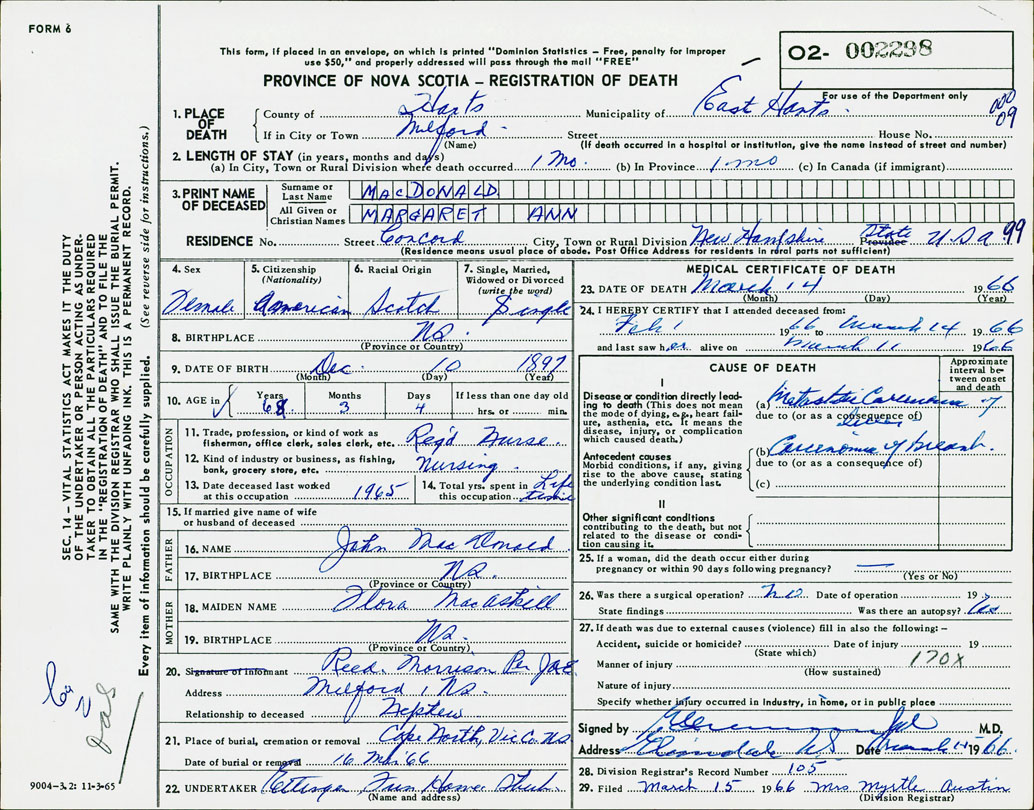 FORM 6
This form, if placed in an envelope, on which is printed "Dominion Statistics – Free, penalty for improper
use $50," and properly addressed will pass through the mail "FREE"
PROVINCE OF NOVA SCOTIA – REGISTRATION OF DEATH
O2- 002298
For use of the Department only
000
09
1. PLACE OF DEATH County of Hants Municipality of East Hants
If in City or Town Milford Street House No.
(Name) (If death occurred in a hospital or institution, give the name instead of street and number)
2. LENGTH OF STAY (in years, months and days)
(a) In City, Town or Rural Division where death occurred 1 Mo. (b) In Province 1 mo (c) In Canada (if immigrant)
3. PRINT NAME OF DECEASED Surname or Last Name MACDONALD
All Given or Christian Names MARGARET ANN
RESIDENCE No. Street Concord City, Town or Rural Division New Hampshire State Province U S a 99
(Residence means usual place of abode. Post Office Address for residents in rural parts not sufficient)
4. Sex Female
5. Citizenship (Nationality) American
6. Racial Origin Scotch
7. Single, Married, Widowed or Divorced (write the word) Single
8. BIRTHPLACE NS.
(Province or Country)
9. DATE OF BIRTH Dec. 10 1897
(Month) (Day) (Year)
10. AGE in Years 68 Months 3 Days 4 If less than one day old hrs. or min.
OCCUPATION
11. Trade, profession, or kind of work as fisherman, office clerk, sales clerk, etc. Reg'd Nurse.
12. Kind of industry or business, as fishing, bank, grocery store, etc. Nursing.
13. Date deceased last worked at this occupation 1965
14. Total yrs. spent in this occupation Life time
15. If married give name of wife or husband of deceased
FATHER
16. NAME John Mac Donald
17. BIRTHPLACE NS.
(Province or Country)
MOTHER
18. MAIDEN NAME Flora MacAskill
19. BIRTHPLACE NS.
(Province or Country)
20. Signature of Informant Reed. Morrison Per
Address Milford, NS.
Relationship to deceased Nephew
21. Place of burial, cremation or removal Cape North, Vic Co. NS
Date of burial or removal 16 Mar '66
22. UNDERTAKER Ettinger Fun Home
(Name and address)
MEDICAL CERTIFICATE OF DEATH
23. DATE OF DEATH March 14 1966
(Month) (Day) (Year)
24. I HEREBY CERTIFY that I attended deceased from:
Feb 1 1966 to March 14 1966
and last saw her alive on March 11 1966
CAUSE OF DEATH
Approximate interval between onset and death
I
Disease or condition directly leading to death (This does not mean the mode of dying, e.g., heart failure, asthenia, etc. It means the disease, injury, or complication which caused death.)
(a) Metastatic Carcinoma of
due to (or as a consequence of)
Antecedent causes
Morbid conditions, if any, giving rise to the above cause, stating the underlying condition last.
(b) Carcinoma of breast.
due to (or as a consequence of)
(c)
II
Other significant conditions
contributing to the death, but not related to the disease or condition causing it.
25. If a woman, did the death occur either during
pregnancy or within 90 days following pregnancy? —
(Yes or No)
26. Was there a surgical operation? no Date of operation 19
State findings Was there an autopsy?
27. If death was due to external causes (violence) fill in also the following: –
Accident, suicide or homicide? Date of injury 19
(State which)
Manner of injury 170X
(How sustained)
Nature of injury
Specify whether injury occurred in Industry, in home, or in public place
Signed by M.D.
Address Elmsdale NS Date March 14 1966.
28. Division Registrar's Record Number 105
29. Filed March 15 1966 Mrs Myrtle Austin
(Division Registrar)
SEC. 14 – VITAL STATISTICS ACT MAKES IT THE DUTY
OF THE UNDERTAKER OR PERSON ACTING AS UNDER-
TAKER TO OBTAIN ALL THE PARTICULARS REQUIRED
IN THE "REGISTRATION OF DEATH" AND TO FILE THE
SAME WITH THE DIVISION REGISTRAR WHO SHALL ISSUE THE BURIAL PERMIT.
WRITE PLAINLY WITH UNFADING INK. THIS IS A PERMANENT RECORD.
Every item of information should be carefully supplied. (See reverse side for instructions.)
9004-3.2: 11-3-65